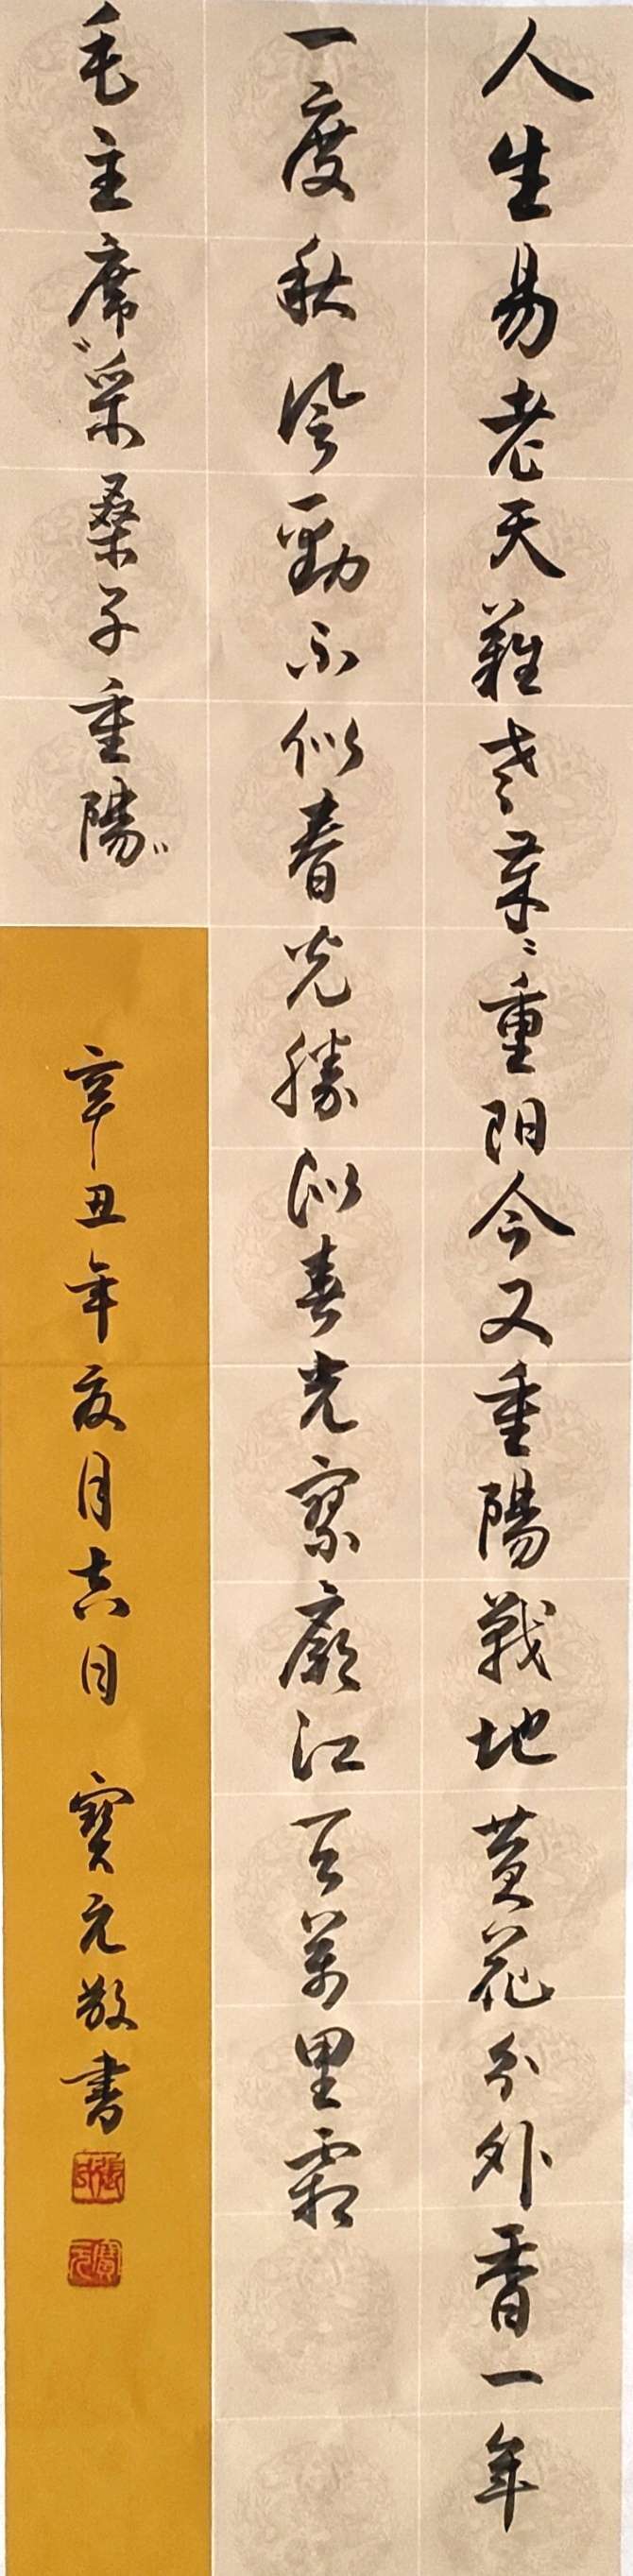 人生易老天難老歲〻重阳今又重陽戰地黄花分外香一年
一度秋風勁不似春光勝似春光寥廓江天萬里霜
毛主席"采桑子重陽" 辛丑年夏月吉日 寶元敬書
寶元